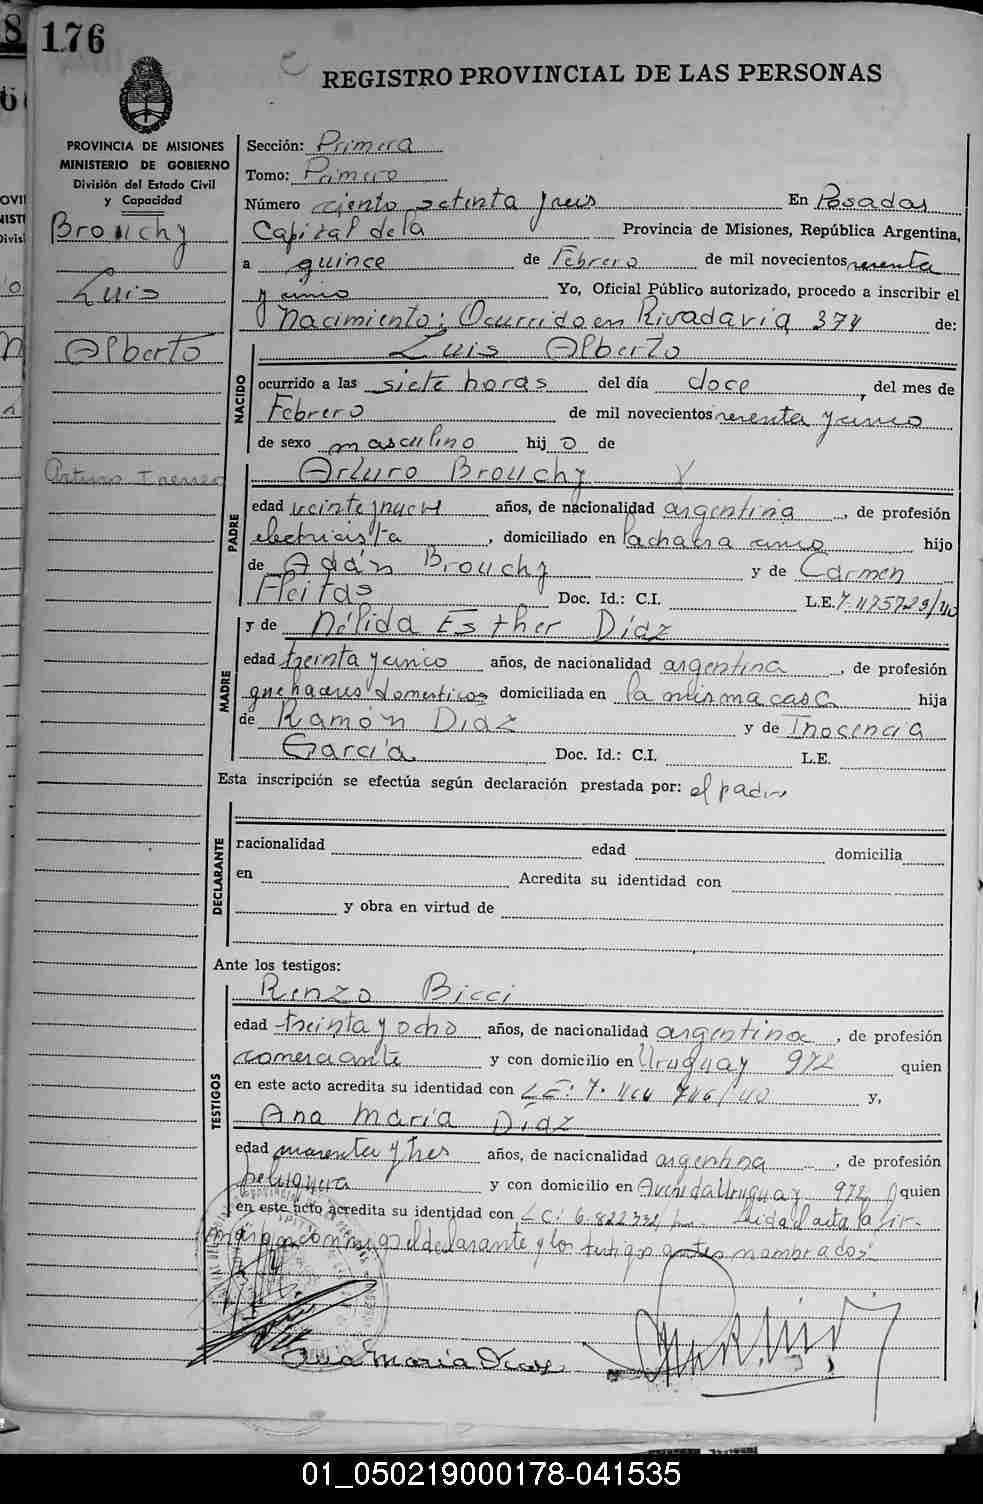 176
REGISTRO PROVINCIAL DE LAS PERSONAS
PROVINCIA DE MISIONES
MINISTERIO DE GOBIERNO
División del Estado Civil
y Capacidad
Brouchy
Luis
Alberto
Sección: Primera
Tomo: Primero
Número ciento setenta y seis En Posadas
Capital de la Provincia de Misiones, República Argentina,
a quince de Febrero de mil novecientos sesenta
y uno Yo, Oficial Público autorizado, procedo a inscribir el
Nacimiento: Ocurrido en Rivadavia 374 de:
Luis Alberto
NACIDO
ocurrido a las siete horas del día doce, del mes de
Febrero de mil novecientos sesenta y uno
de sexo masculino hijo de
Arturo Brouchy
PADRE
edad veinte y nueve años, de nacionalidad argentina, de profesión
electricista, domiciliado en la chacra uno hijo
de Adán Brouchy y de Carmen
Fleitas Doc. Id.: C.I. L.E.
y de Nélida Esther Díaz
MADRE
edad treinta y cinco años, de nacionalidad argentina, de profesión
quehaceres domesticos domiciliada en la misma casa hija
de Ramón Díaz y de Inocencia
García Doc. Id.: C.I. L.E.
Esta inscripción se efectúa según declaración prestada por: el padre
DECLARANTE
nacionalidad edad domicilia
en Acredita su identidad con
y obra en virtud de
Ante los testigos:
Renzo Bicci
TESTIGOS
edad treinta y ocho años, de nacionalidad argentina, de profesión
comerciante y con domicilio en Uruguay 972 quien
en este acto acredita su identidad con L E: 7. y,
Ana María Díaz
edad cuarenta y tres años, de nacionalidad argentina, de profesión
peluquera y con domicilio en Avenida Uruguay 972 quien
en este acto acredita su identidad con L C: 6.822.332 Leida el acta la fir-
maron conmigo el declarante y los testigos antes nombrados
Ana Maria Diaz
01_050219000178-041535